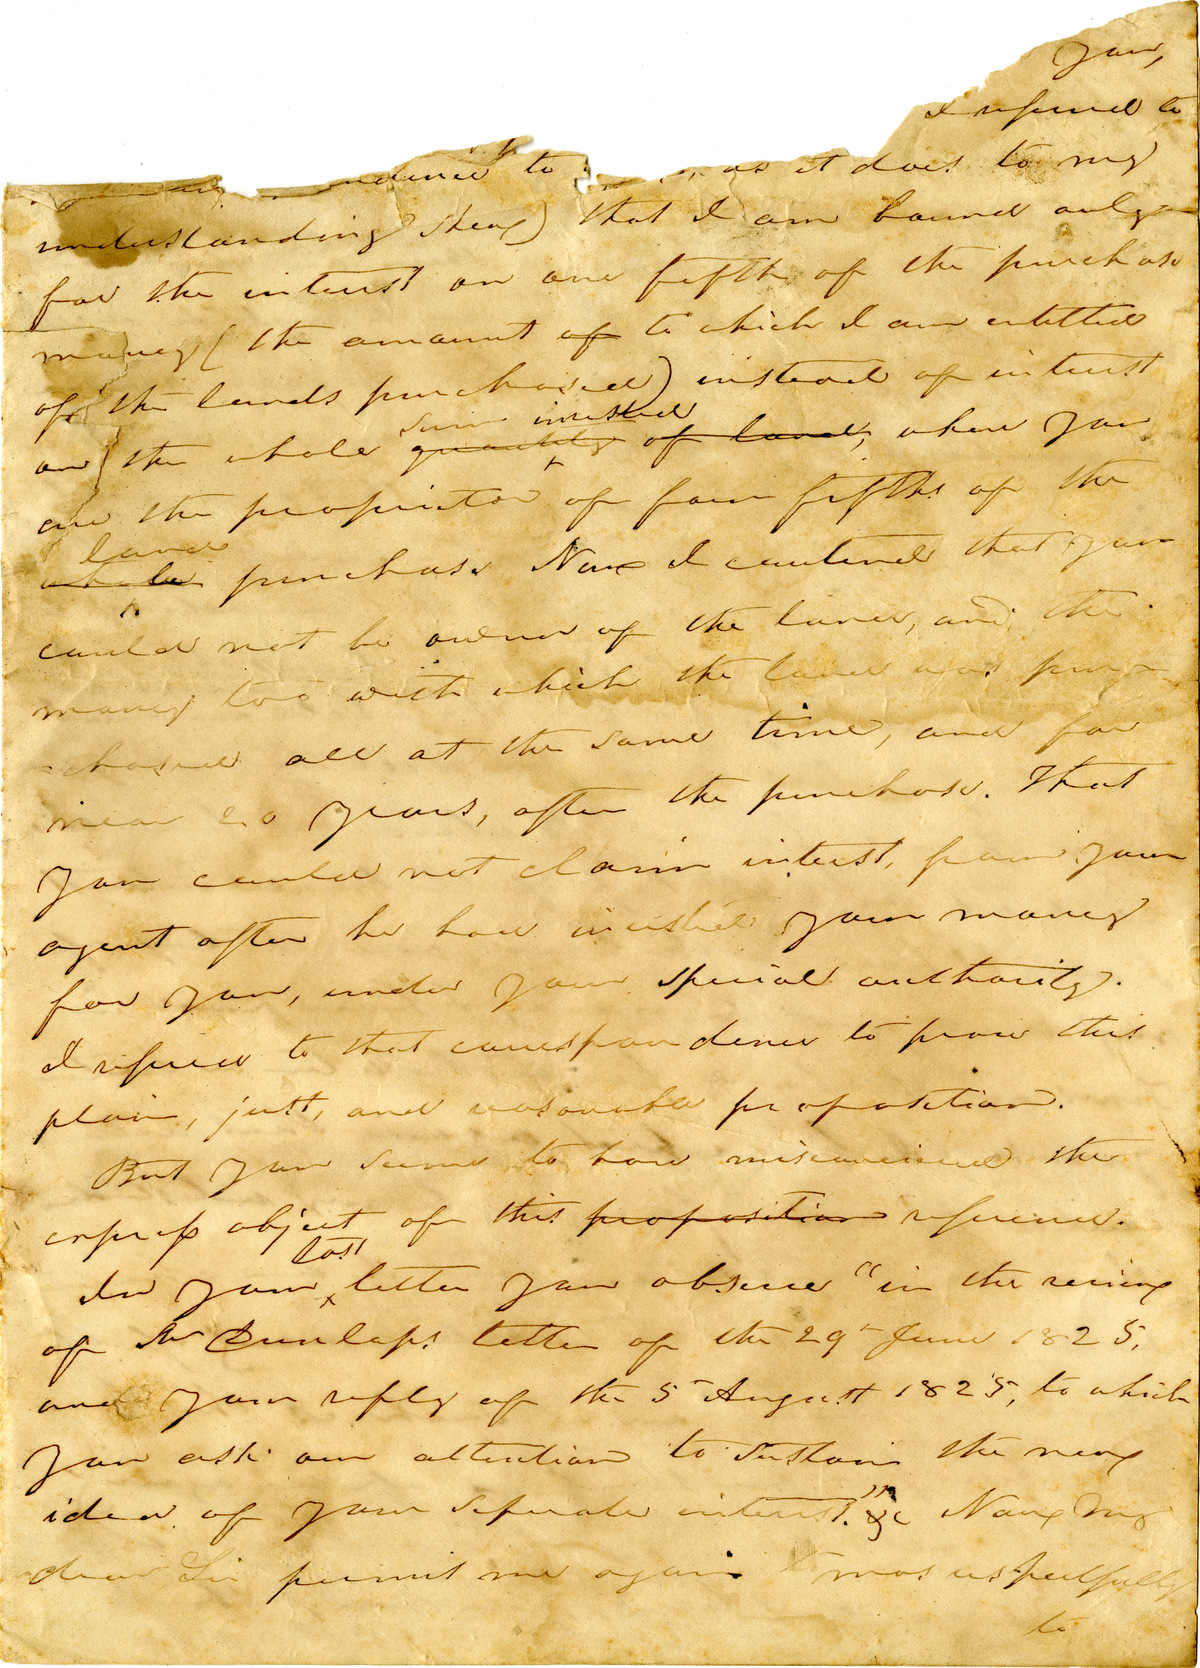 you,
I refered to
to as it does to my
understanding shew) that I am bound only
for the interest on one fifth of the purchase
money (the amount of to which I am entitled
of the lands purchased) instead of interest
sum invested
on the whole quantity of land, when you
are the proprietor of four fifths of the
land
whole purchase Now I contend that you
could not be owner of the land, and the
money too with which the land was pur-
-chased all at the same time, and for
near 20 years, after the purchase. That
you could not claim interest, from your
agent after he had invested your money
for you, under your special authority.
I refered to that correspondence to prove this
plain, just, and reasonable proposition.
But you seem to have misconceived the
express object of this proposition reference.
last
In your letter you observe "in the review
of Mr Dunlaps letter of the 29th June 1825,
and your reply of the 5 August 1825, to which
you ask our attention to sustain the new
idea of your seperate interest." &c Now my
dear Sir permit me again most respectfully
to